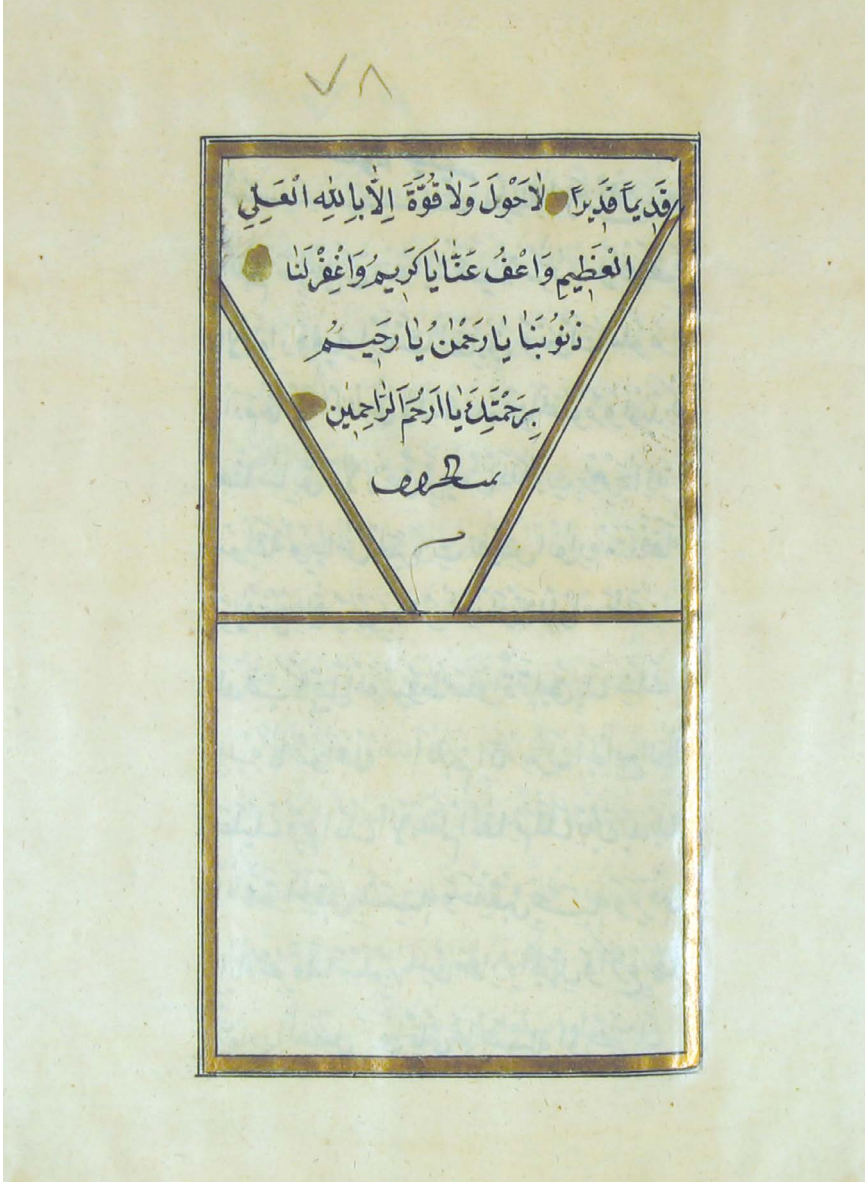 ٧٨
قَدِيمًا قَدِيرًا لَاحَوْلَ وَلَا قُوَّةَ اِلَّا بِاللهِ الْعَلِيِ
الْعَظِيمِ وَاعْفُ عَنَّا يَا كَرِيمُ وَاغْفِرْ لَنَا
ذُنُوبَنَا يَا رَحْمٰنُ يَا رَحِيمُ
بِرَحْمَتِكَ يَا اَرْحَمَ الرَّاحِمِين